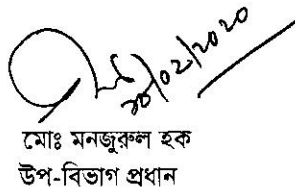 ২০/০২/২০২০
মোঃ মনজুরুল হক
উপ-বিভাগ প্রধান